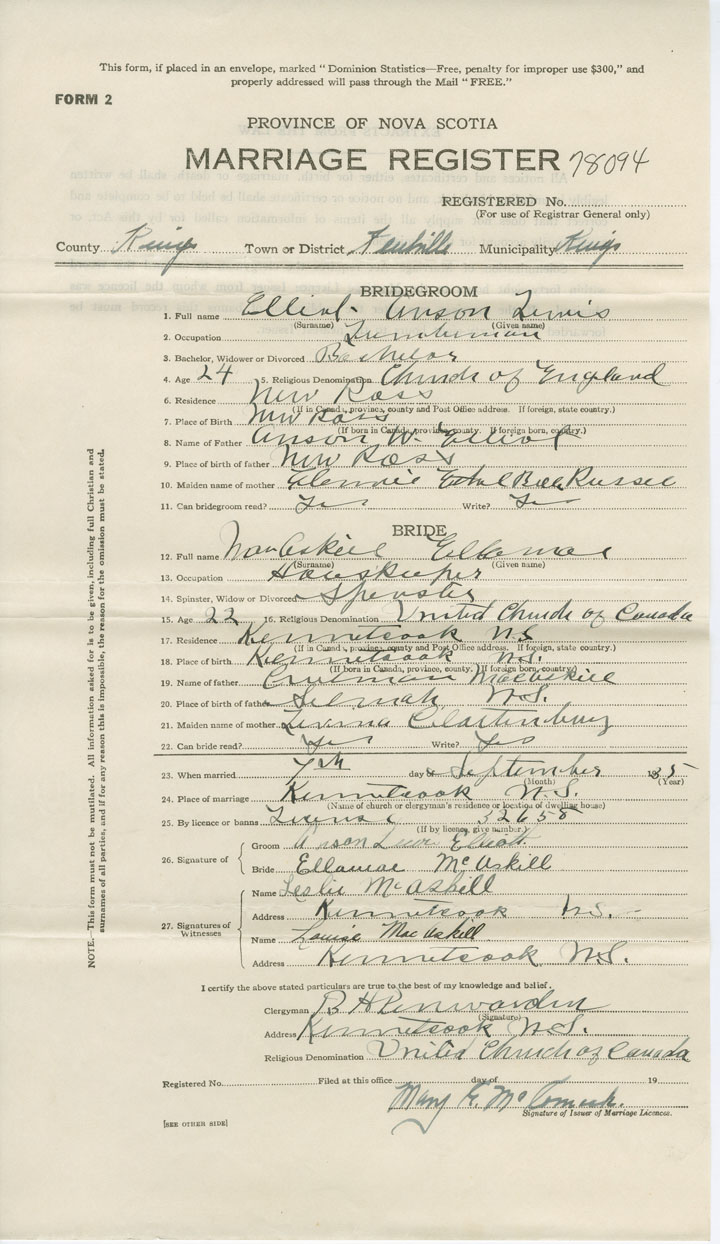 This form, if placed in an envelope, marked “ Dominion Statistics—Free, penalty for improper use $300,” and
properly addressed will pass through the Mail “ FREE.”
FORM 2
PROVINCE OF NOVA SCOTIA
MARRIAGE REGISTER 78094
REGISTERED No.
(For use of Registrar General only)
County Kings Town or District Municipality Kings
BRIDEGROOM
1. Full name Elliot Anson Lewis
(Surname) (Given name)
2. Occupation Lumberman
3. Bachelor, Widower or Divorced Bachelor
4. Age 24 5. Religious Denomination Church of England
6. Residence New Ross
(If in Canada, province, county and Post Office address. If foreign, state country.)
7. Place of Birth New Ross
(If born in Canada, province, county. If foreign born, country.)
8. Name of Father Anson W. Elliot
9. Place of birth of father New Ross
10. Maiden name of mother Ethel Bell Russel
11. Can bridegroom read? Yes Write? Yes
BRIDE
12. Full name MacAskill Ellamae
(Surname) (Given name)
13. Occupation Houskeeper
14. Spinster, Widow or Divorced Spinster
15. Age 22 16. Religious Denomination United Church of Canada
17. Residence Kennetcook N.S.
(If in Canada, province, county and Post Office address. If foreign, state country.)
18. Place of birth Kennetcook N.S.
(If born in Canada, province, county. If foreign born, country.)
19. Name of father MacAskill
20. Place of birth of father Selmah N.S.
21. Maiden name of mother
22. Can bride read? Yes Write? Yes
23. When married 7th day of September 1935
(Month) (Year)
24. Place of marriage Kennetcook N.S.
(Name of church or clergyman's residence or location of dwelling house)
25. By licence or banns License 32658
(If by licence, give number)
26. Signature of
Groom Anson Lewis Elliott
Bride Ellamae McAskill
27. Signatures of Witnesses
Name Leslie McAskill
Address Kennetcook N.S.
Name Louise MacAskill
Address Kennetcook N.S.
I certify the above stated particulars are true to the best of my knowledge and belief.
Clergyman B H Penwarden
(Signature)
Address Kennetcook N.S.
Religious Denomination United Church of Canada
Registered No. Filed at this office day of 19
Mary E. McCormick.
Signature of Issuer of Marriage Licences.
[SEE OTHER SIDE]
NOTE.—This form must not be mutilated. All information asked for is to be given, including full Christian and
surnames of all parties, and if for any reason this is impossible, the reason for the omission must be stated.